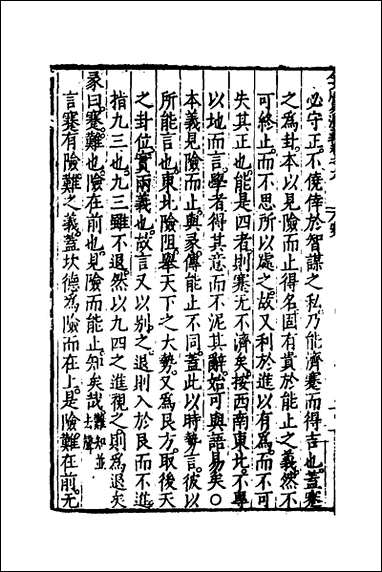 必守正不僥倖於智謀之私乃能濟蹇而得吉也蓋蹇
之為卦本以見險而止得名固有貴於能止之義然不
可終止而不思所以處之故又利於進以有為而不可
失其正也能是四者則蹇无不濟矣按西南東北不學
以地而言學者得其意而不泥其辭始可與語易矣○
本義見險而止與彖傳能止不同蓋此以時勢言彼以
所能言也東北險阻舉天下之大勢又為艮方取後天
之卦位實兩義也故言又以別之退則入於艮而不進
指九三也九三雖不退然以九四之進視之則為退矣
彖曰蹇難也險在前也見險而能止知矣哉難知並去聲
言蹇有險難之義蓋坎德為險而在上是險難在前无